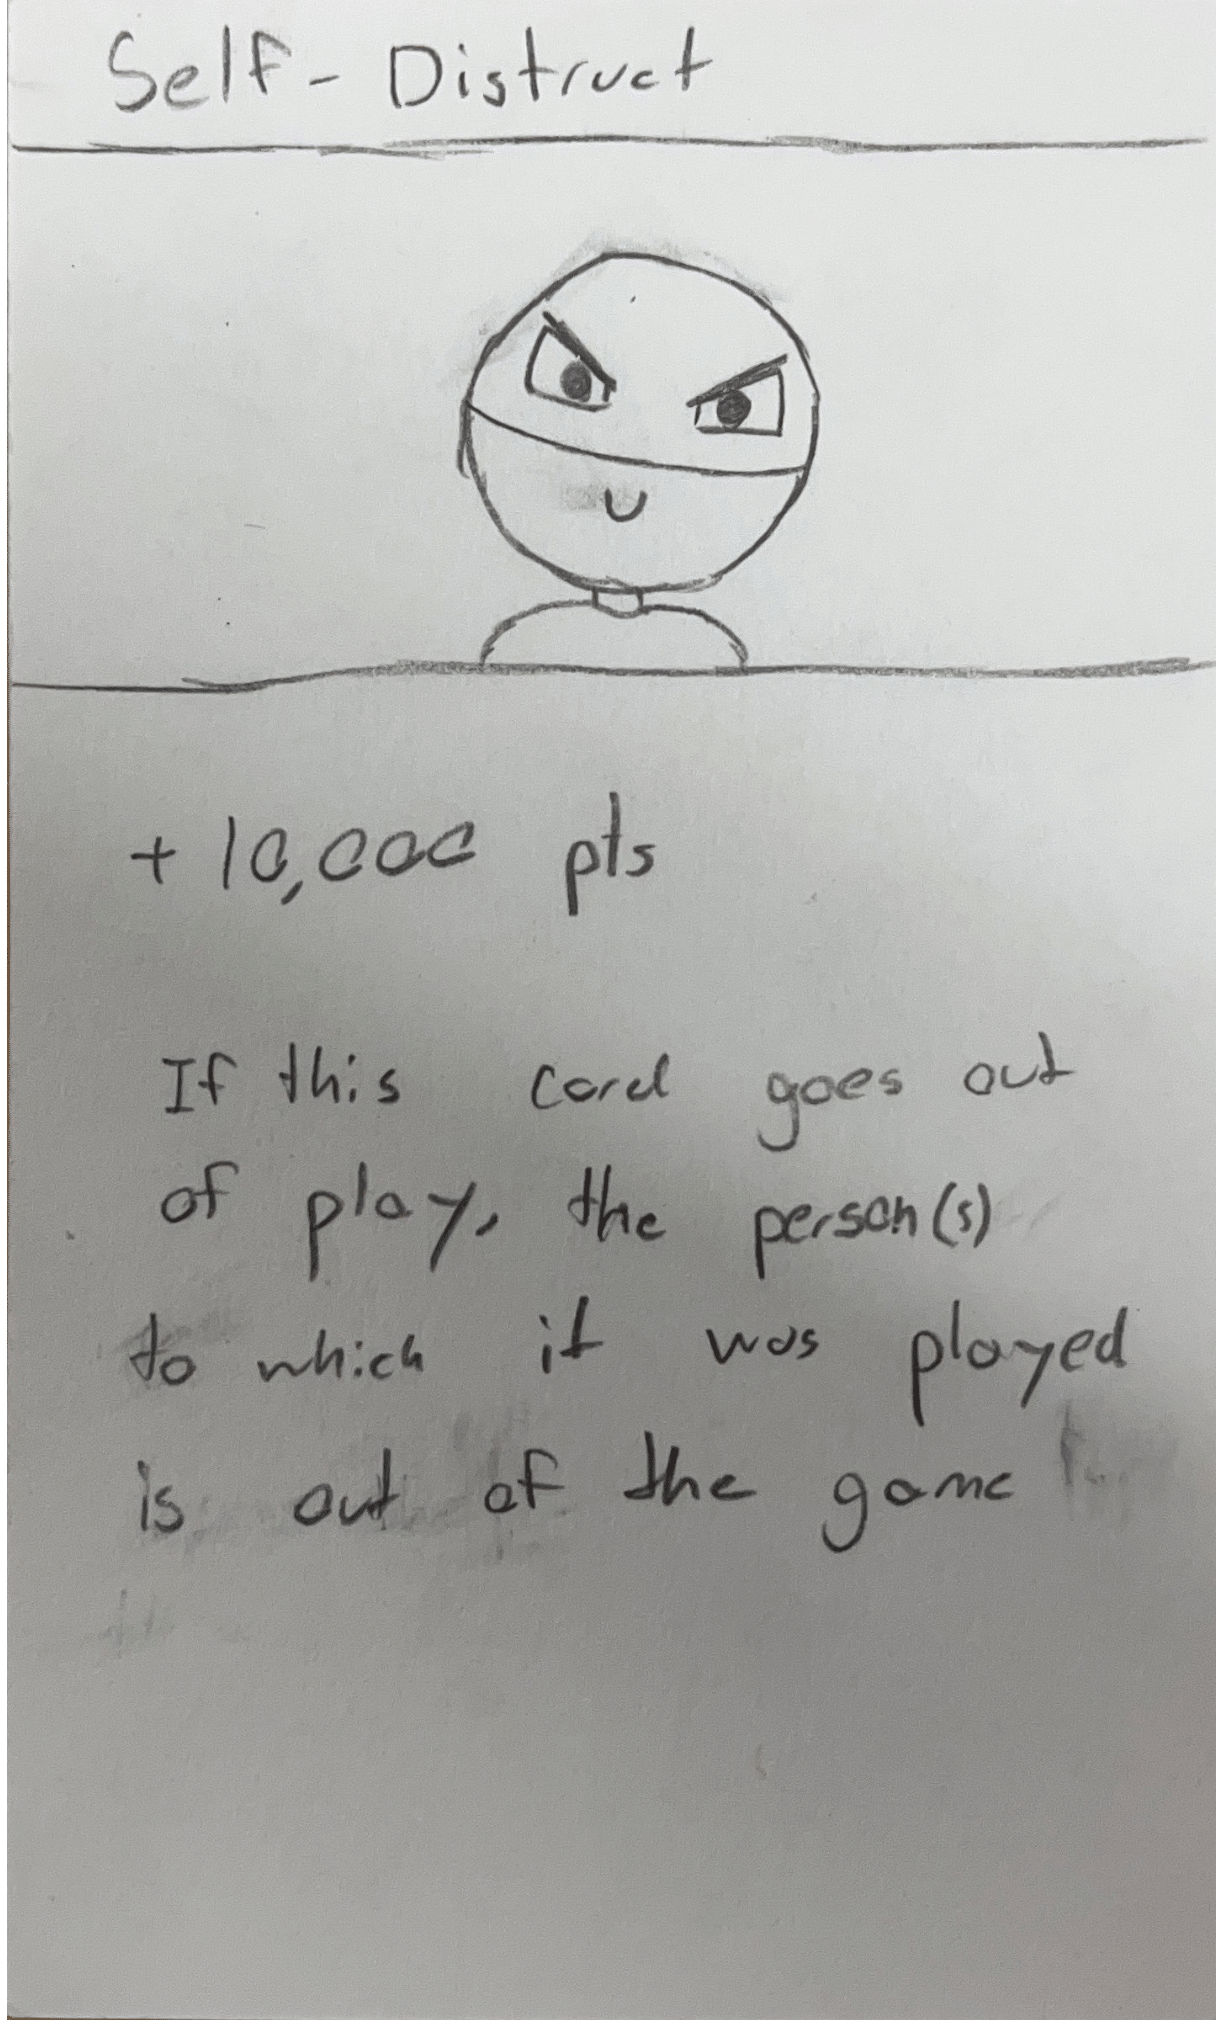 Self-Distruct
+10,000 pts
If this card goes out
of play, the person(s)
to which it was played
is out of the game